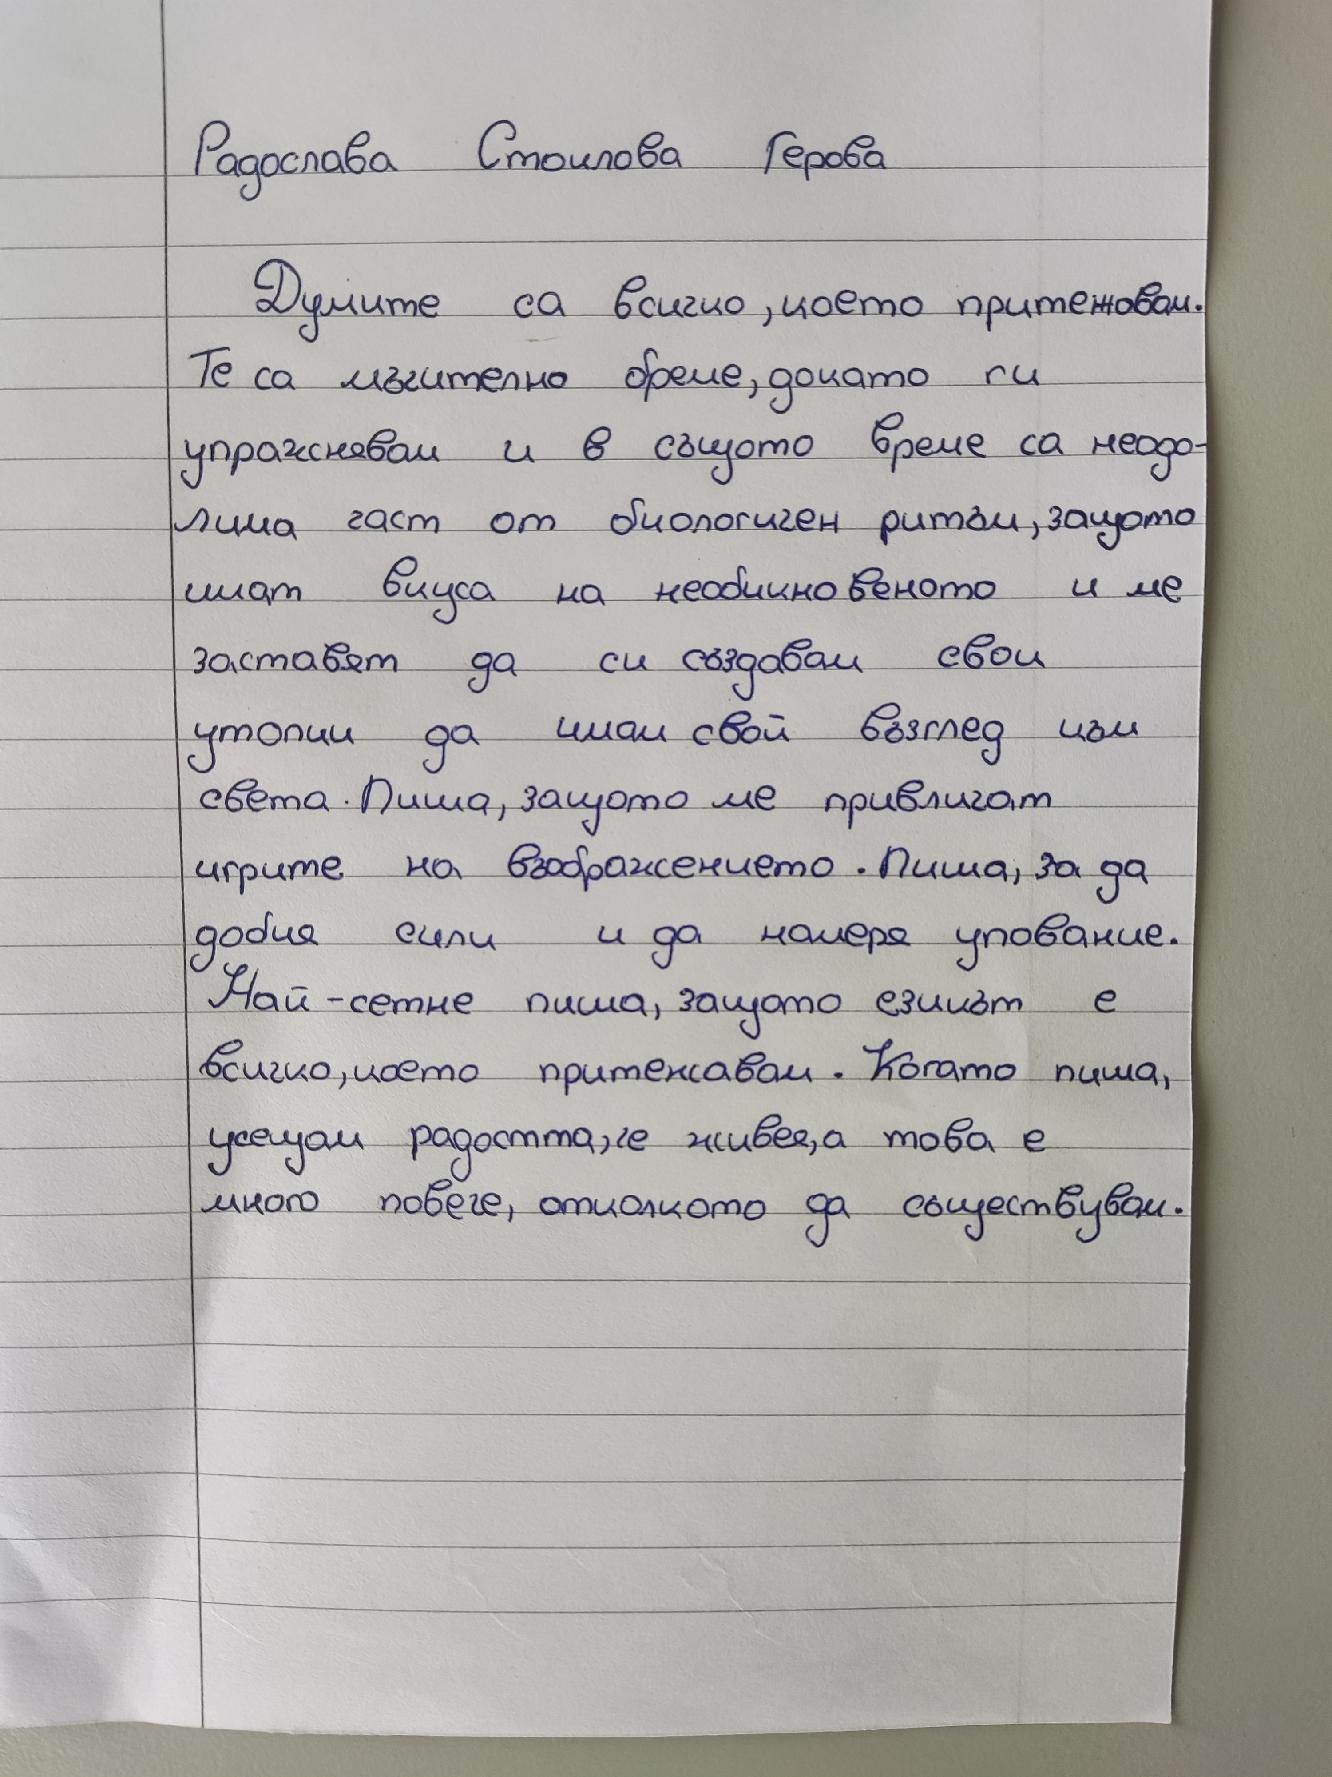 Радослава Стоилова Герова
Думите са всичко, което притежавам.
Те са мъчително бреме, докато ги
упражнявам и в същото време са неодо-
лима част от биологичен ритъм, защото
имат вкуса на необикновеното и ме
заставят да си създавам свои
утопии да имам свой възглед към
света. Пиша, защото ме привличат
игрите на въображението. Пиша, за да
добия сили и да намеря упование.
Най-сетне пиша, защото езикът е
всичко, което притежавам. Когато пиша,
усещам радостта, че живея, а това е
много повече, отколкото да съществувам.